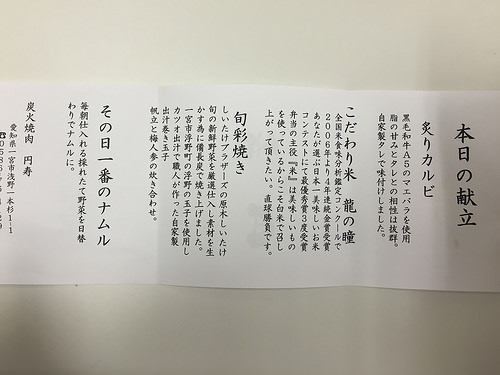 本日の献立
炙りカルビ
黒毛和牛A5のマエバラを使用
脂の甘みとタレとの相性は抜群。
自家製タレで味付けしました。
こだわり米 龍の瞳
全国米食味分析鑑定コンクールで
2006年より4年連続金賞受賞
あなたが選ぶ日本一美味しいお米
コンテストにて最優秀賞3度受賞
弁当の主役『米』は美味しいもの
を使っているからこそ白米で召し
上がって頂きたい。直球勝負です。
旬彩焼き
しいたけブラザーズの原木しいたけ
旬の新鮮野菜を厳選仕入し素材を生
かす為に備長炭で焼き上げました。
一宮市浮野町の浮野の玉子を使用し
カツオ出汁で職人が作った自家製
出汁巻き玉子
帆立と梅人参の炊き合わせ。
その日一番のナムル
毎朝仕入れる採れたて野菜を日替
わりでナムルに。
炭火焼肉 円寿
愛知県一宮市浅野一本杉1-1